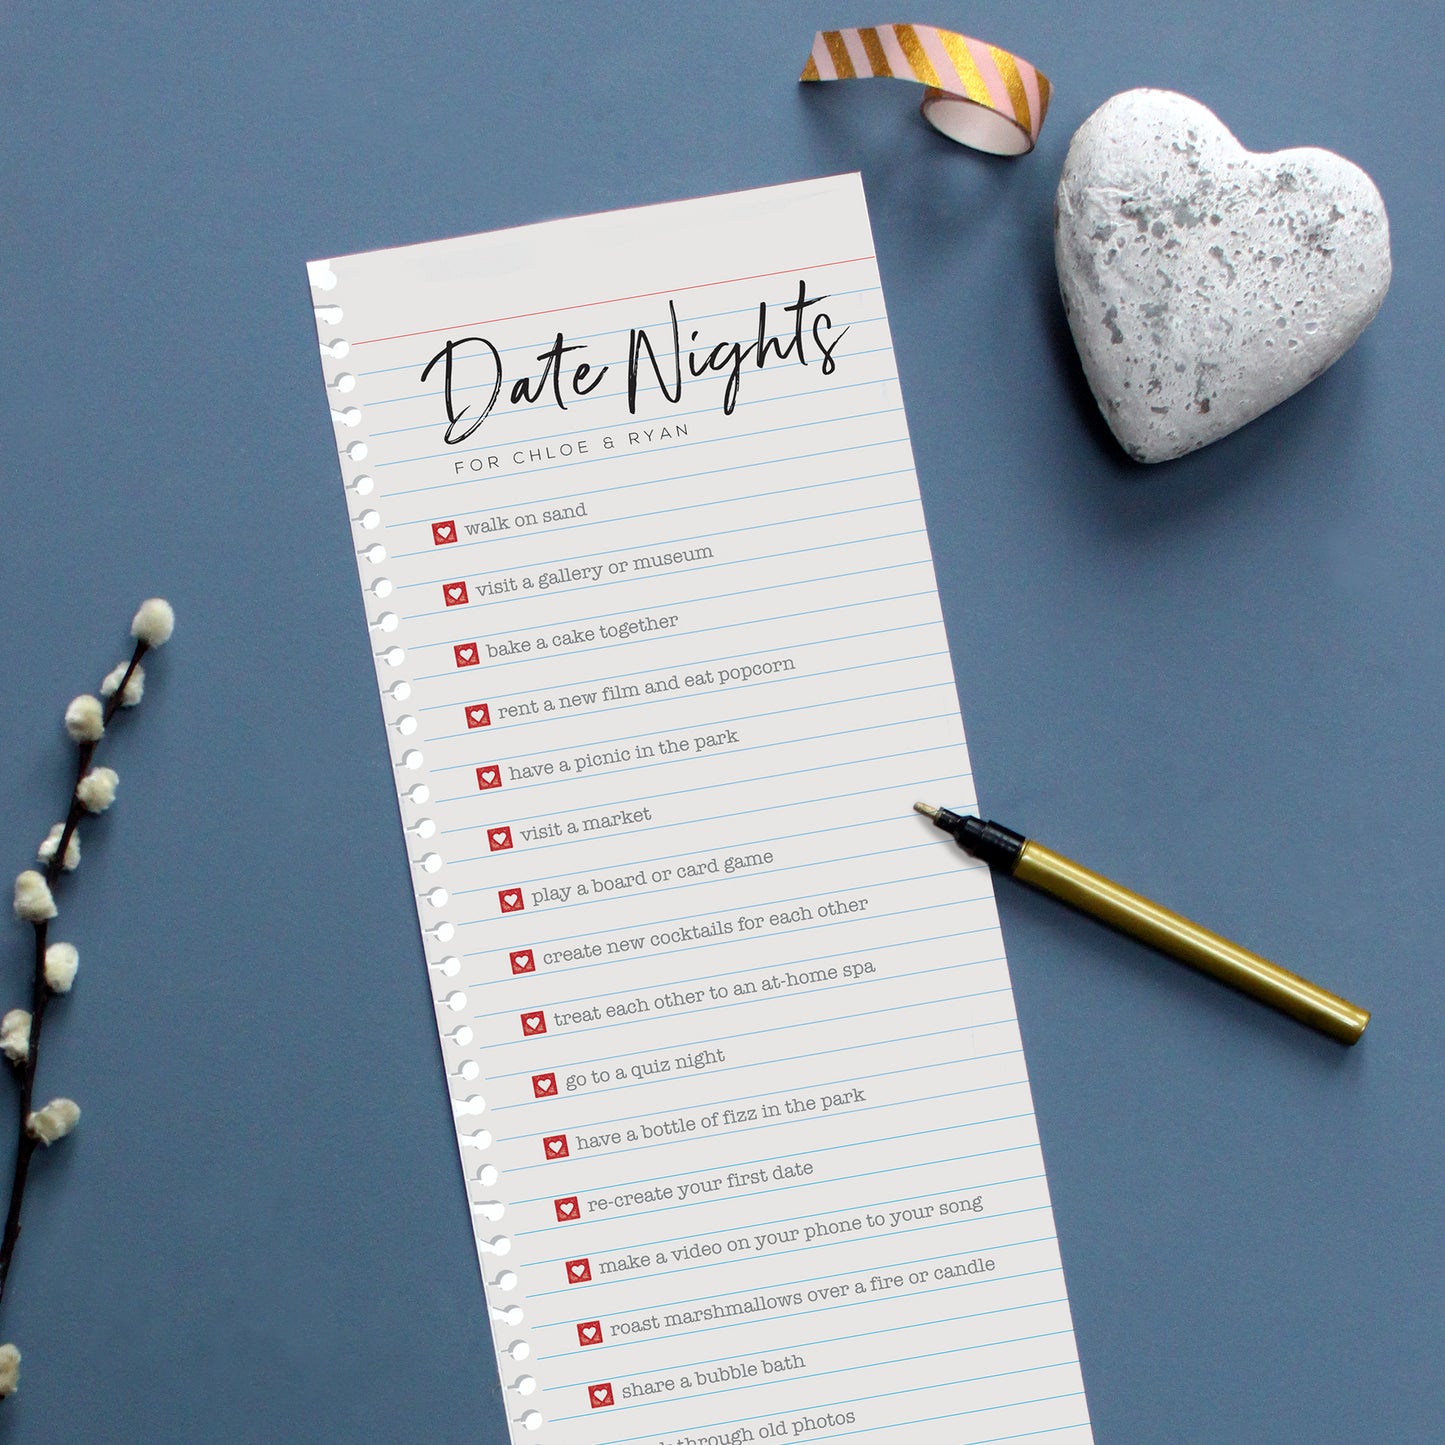 Date Nights
FOR CHLOE & RYAN
walk on sand
visit a gallery or museum
bake a cake together
rent a new film and eat popcorn
have a picnic in the park
visit a market
play a board or card game
create new cocktails for each other
treat each other to an at-home spa
go to a quiz night
have a bottle of fizz in the park
re-create your first date
make a video on your phone to your song
roast marshmallows over a fire or candle
share a bubble bath
through old photos